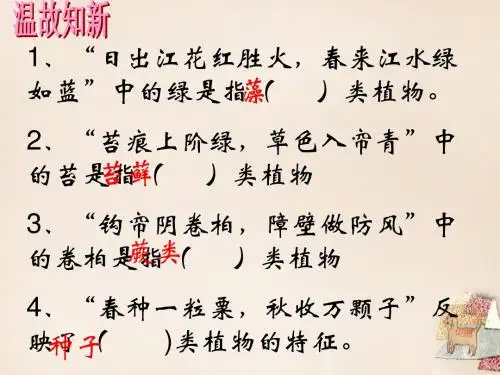 温故知新
1、“日出江花红胜火，春来江水绿
如蓝”中的绿是指藻(　　)类植物。
2、“苔痕上阶绿，草色入帘青”中
的苔是指苔藓(　　)类植物
3、“钩帘阴卷柏，障壁做防风”中
的卷柏是指蕨类(　　)类植物
4、“春种一粒粟，秋收万颗子”反
映了种子(　　)类植物的特征。